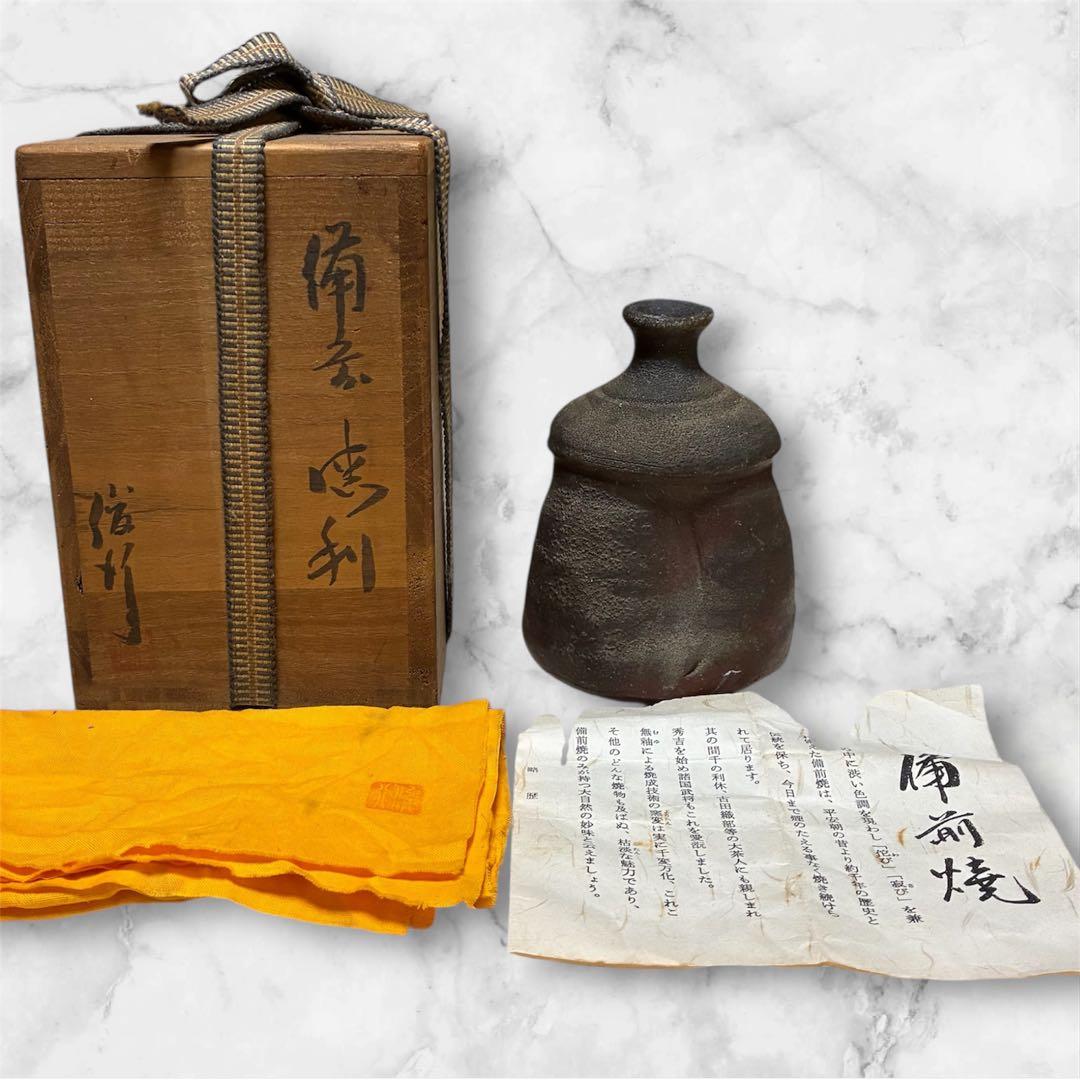 備前
徳利
俊作
備前焼
の中に渋い色調を現わし「侘び」「寂び」を兼
た備前焼は、平安朝の昔より約千年の歴史と
伝統を保ち、今日まで煙のたえる事なく焼き続けら
れて居ります。
其の間千の利休、古田織部等の大茶人にも親しまれ
秀吉を始め諸国武将もこれを愛翫しました。
無釉による焼成技術の窯変は実に千変万化、これこ
そ他のどんな焼物も及ばぬ、枯淡な魅力であり、
備前焼のみが持つ大自然の妙味と云えましょう。
略歴